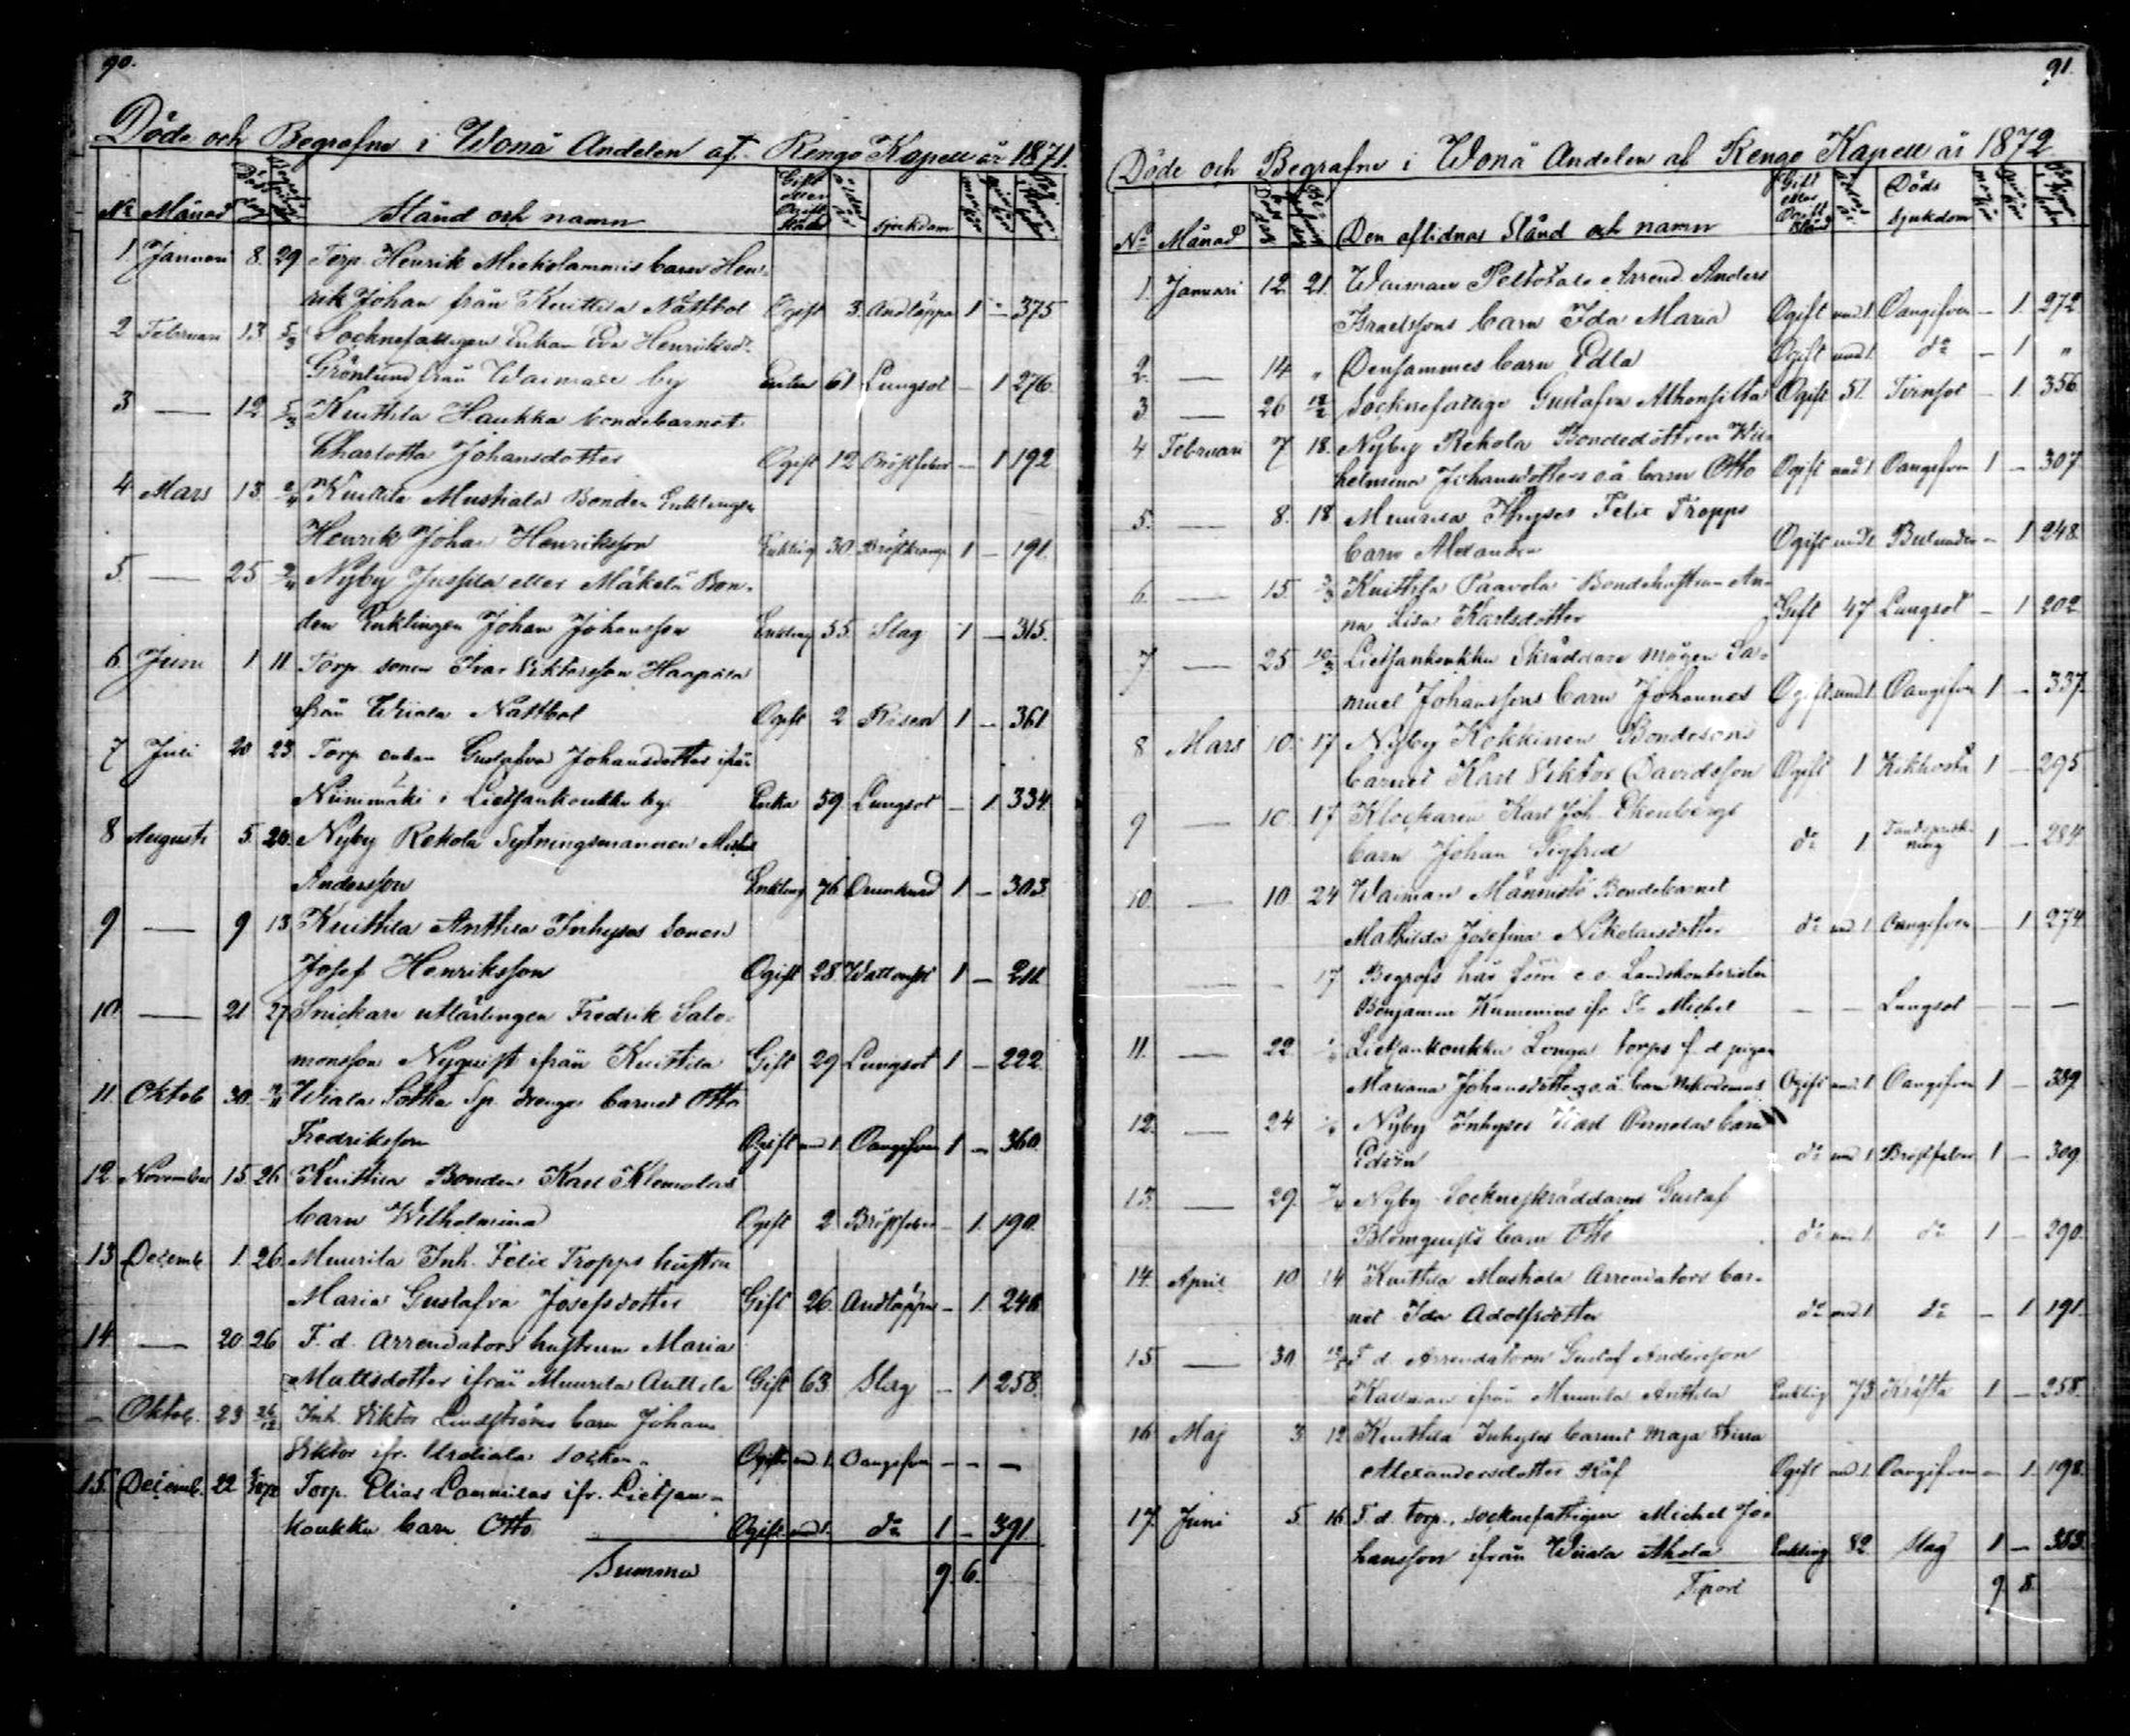 90.
Döde och Begrafne i Wonå Andelen af Rengo Kapell år 1871.
No Månad Stånd och namn sjukdom
1. Januari 8. 29 Torp. Henrik Mickolammis barn Hen-
rik Johan från Kuittila Nåttbol Ogift 3. Andtäppa 1 - 375
2 Februari 13. 5/3 Socknefattigen Enkan Eva Henriksdr
Grönlund från Waimare by Enka 61 Lungsot - 1 276.
3 — 12 5/3 Kuittila Haukka bondebarnet
Charlotta Johansdotter Ogift 12 Bröstfeber - 1 192
4 Mars 13. 2/4 Kuittila Mustiala Bonden Enklingen
Henrik Johan Henriksson Enkling 30. Bröstkramp 1 - 191.
5. — 25 Nyby Jussila eller Mäkelä Bon-
den Enklingen Johan Johansson Enkling 55. Slag 1 - 315.
6 Juni 1 11 Torp. sonen Ivar Viktorsson Haapala
från Wiiala Nåttbol Ogift 2 Risen 1 - 361
7 Juli 20 23. Torp. enkan Gustafva Johansdotter ifrån
Niinimäki i Lietsankoukku by Enka 59 Lungsot - 1. 334.
8 Augusti 5. 20. Nyby Rekola Sytningsmannen
Andersson Enkling 76 Drunknad 1 - 303.
9 — 9 13 Kuittila Anttila Inhyses sonen
Josef Henriksson Ogift 28 Wattensot 1 - 211.
10 — 21 27 Snickare utlärlingen Fredrik Salo-
monsson Nyquist från Kuittila Gift 29 Lungsot 1 - 222.
11. Oktob 30. Wiala Sotka Sp. drenges barnet Otto
Fredriksson Ogift und 1. Oangifven 1 - 360.
12. November 15. 26 Kuittila Bonden Karl Klemolas
barn Wilhelmina Ogift 2 Bröstfeber - 1. 190.
13 Decemb. 1. 26. Muurila Inh. Felix Tropps hustru
Maria Gustafva Josefsdotter Gift 26 Andtäppa - 1. 248
14 — 20. 26 F. d. Arrendators hustrun Maria
Mattsdotter ifrån Muurila Anttila Gift 63 Slag - 1 258.
- Oktob. 23 26/12 Inh. Viktor Lindströms barn Johan
Viktor ifr. Urdiala socken Ogift und 1. Oangifven - - -
15. Decemb. 22 Torp. Elias Lammilas ifr. Lietsan-
koukku barn Otto Ogift und 1. do 1 - 391.
Summa 9. 6.
91.
Döde och Begrafne i Wonå Andelen af Rengo Kapell år 1872
No Månad Den aflidnas Stånd och namn Gift eller Ogift Stånd Döds sjukdom
1. Januari 12. 21. Waimare Peltotalo Arrend. Anders
Israelssons barn Ida Maria Ogift und 1. Oangifven - 1. 272
2. — 14 " Densammes barn Edla Ogift und 1 do - 1 "
3 — 26 18/2 Socknefattige Gustafva Alhonsilta Ogift 51. Tvinsot - 1. 356
4 Februari 7 18. Nyby Rekola Bondedottren Wil-
helmina Johansdotters o.ä. barn Otto Ogift und 1 Oangifven 1 - 307
5. — 8. 18. Muurila Inhyses Felix Tropps
barn Alexandra Ogift - 1 248.
6. — 15. 3/3 Kuittila Paavola Bondehustrun An-
na Lisa Karlsdotter Gift 47 Lungsot - 1 202
7 — 25 10/3 Lietsankoukku Skräddare mågen Sa-
muel Johanssons barn Johannes Ogift und 1. Oangifven 1 - 337.
8 Mars 10. 17 Nyby Kokkinen Bondesons
barnet Karl Viktor Davidsson Ogift 1 Kikhosta 1 - 295
9 — 10. 17 Klockaren Karl Joh. Ekenbergs
barn Johan Sigfred do 1 Tandsprickning 1 - 284
10. — 10 24 Waimare Männistö Bondebarnet
Mathilda Josefina Nikolaisdotter do und 1 Oangifven - 1 274
— - 17 Begrofs här förre e. o. Landskontoristen
Benjamin Kumenius ifr. St. Michel - - Lungsot - - -
11. — 22 Lietsankoukku Longa torps f. d pigan
Mariana Johansdotters o.ä. barn Nikodemus Ogift und 1 Oangifven 1 - 389
12. — 24 Nyby Inhyses barn
Edvin do und 1 Bröstfeber 1 - 309
13. — 29. 7/4 Nyby Sockneskräddarns Gustaf
Blomquists barn Otto do und 1 do 1 - 290.
14. April 10 14 Kuittila Mustiala Arrendators bar-
net Ida Adolfsdotter do und 1 do - 1 191.
15 — 30 F. d. Arrendatorn Gustaf Andersson
Kallman ifrån Muurila Anttila Enkling 73 Kräfta 1 - 258.
16 Maj 3 12 Kuittila Inhyses barnet Maja Stina
Alexandersdotter Räf Ogift und 1. Oangifven - 1. 198.
17. Juni 5. 16 F. d. torp., socknefattigen Michel Jo-
hansson ifrån Wiiala Ahola Enkling 82. Slag 1 - 353.
Tport 9 8